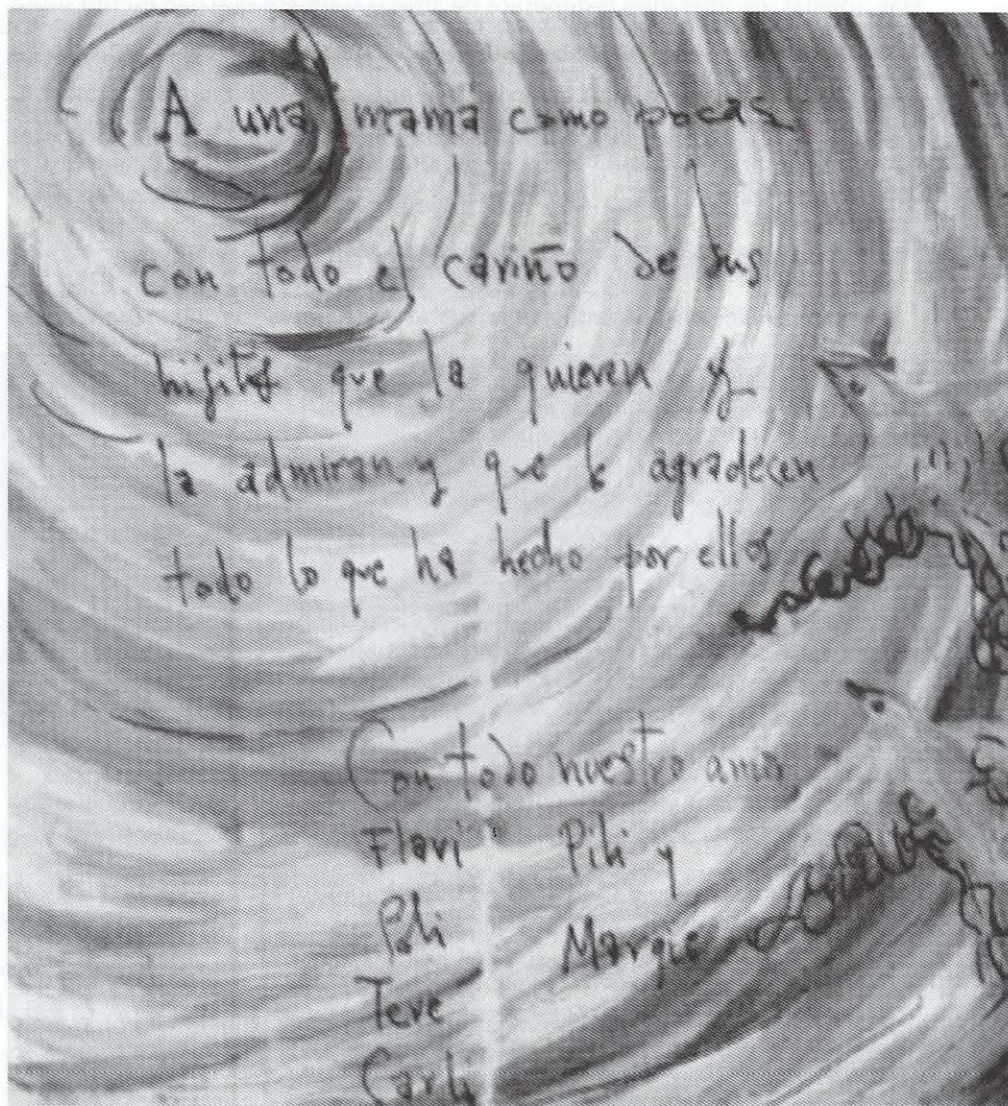 A una mama como pocas
con todo el cariño de sus
hijitos que la quieren y
la admiran y que le agradecen
todo lo que ha hecho por ellos
Con todo nuestro amor
Flavi Pili y
Margie
Teve
Carli